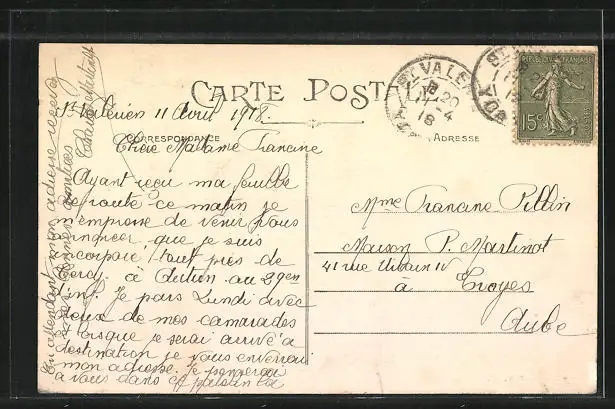 CARTE POSTALE
CORRESPONDANCE
ADRESSE
St Valérien 11 Avril 1918.
Chère Madame Francine
Ayant reçu ma feuille
de route ce matin je
m'empresse de venir vous
que je suis
incorporé tout près de
à Autun au 29en
d'inf. Je pars Lundi avec
deux de mes camarades
lorsque je serai arrivé à
destination je vous enverrai
mon adresse. Je penserai
à vous dans
En attendant mon adresse recevez
mes amitiés
Mme Francine Pillin
Maison P. Martinot
41 rue Urbain IV
à Troyes
Aube
ST VALER
20
4
18
REPUBLIQUE FRANÇAISE
15c